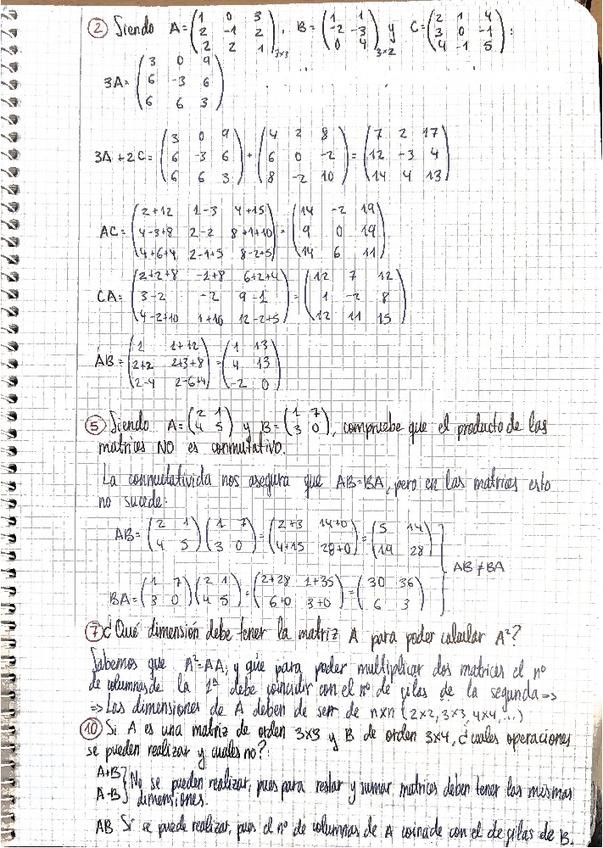 ② Siendo A=(1 0 3 / 2 -1 2 / 2 2 1)3x3, B=(1 1 / -2 -3 / 0 4)3x2 y C=(2 1 4 / 3 0 -1 / 4 -1 5):
3A=(3 0 9 / 6 -3 6 / 6 6 3)
3A+2C=(3 0 9 / 6 -3 6 / 6 6 3)+(4 2 8 / 6 0 -2 / 8 -2 10)=(7 2 17 / 12 -3 4 / 14 4 13)
AC=(2+12 1-3 4+15 / 4-3+8 2-2 8+1+10 / 4+6+4 2-1+5 8-2+5)=(14 -2 19 / 9 0 19 / 14 6 11)
CA=(2+2+8 -1+8 6+2+4 / 3-2 -2 9-1 / 4-2+10 1+10 12-2+5)=(12 7 12 / 1 -2 8 / 12 11 15)
AB=(1 1+12 / 2+2 2+3+8 / 2-4 2-6+4)=(1 13 / 4 13 / -2 0)
⑤ Siendo A=(2 1 / 4 5) y B=(1 7 / 3 0), compruebe que el producto de las
matrices NO es conmutativo.
La conmutativida nos asegura que AB=BA, pero en las matrices esto
no sucede:
AB=(2 1 / 4 5)(1 7 / 3 0)=(2+3 14+0 / 4+15 28+0)=(5 14 / 19 28)
AB≠BA
BA=(1 7 / 3 0)(2 1 / 4 5)=(2+28 1+35 / 6+0 3+0)=(30 36 / 6 3)
⑦ ¿Qué dimensión debe tener la matriz A para poder calcular A²?
Sabemos que A²=AA, y que para poder multiplicar dos matrices el nº
de columnas de la 1ª debe coincidir con el nº de filas de la segunda =>
=> Las dimensiones de A deben de ser de nxn (2x2, 3x3, 4x4,...)
⑩ Si A es una matriz de orden 3x3 y B de orden 3x4, ¿cuales operaciones
se pueden realizar y cuales no?:
A+B
A-B } No se pueden realizar, pues para restar y sumar matrices deben tener las mismas
dimensiones.
AB Sí se puede realizar, pues el nº de columnas de A coincide con el de filas de B.